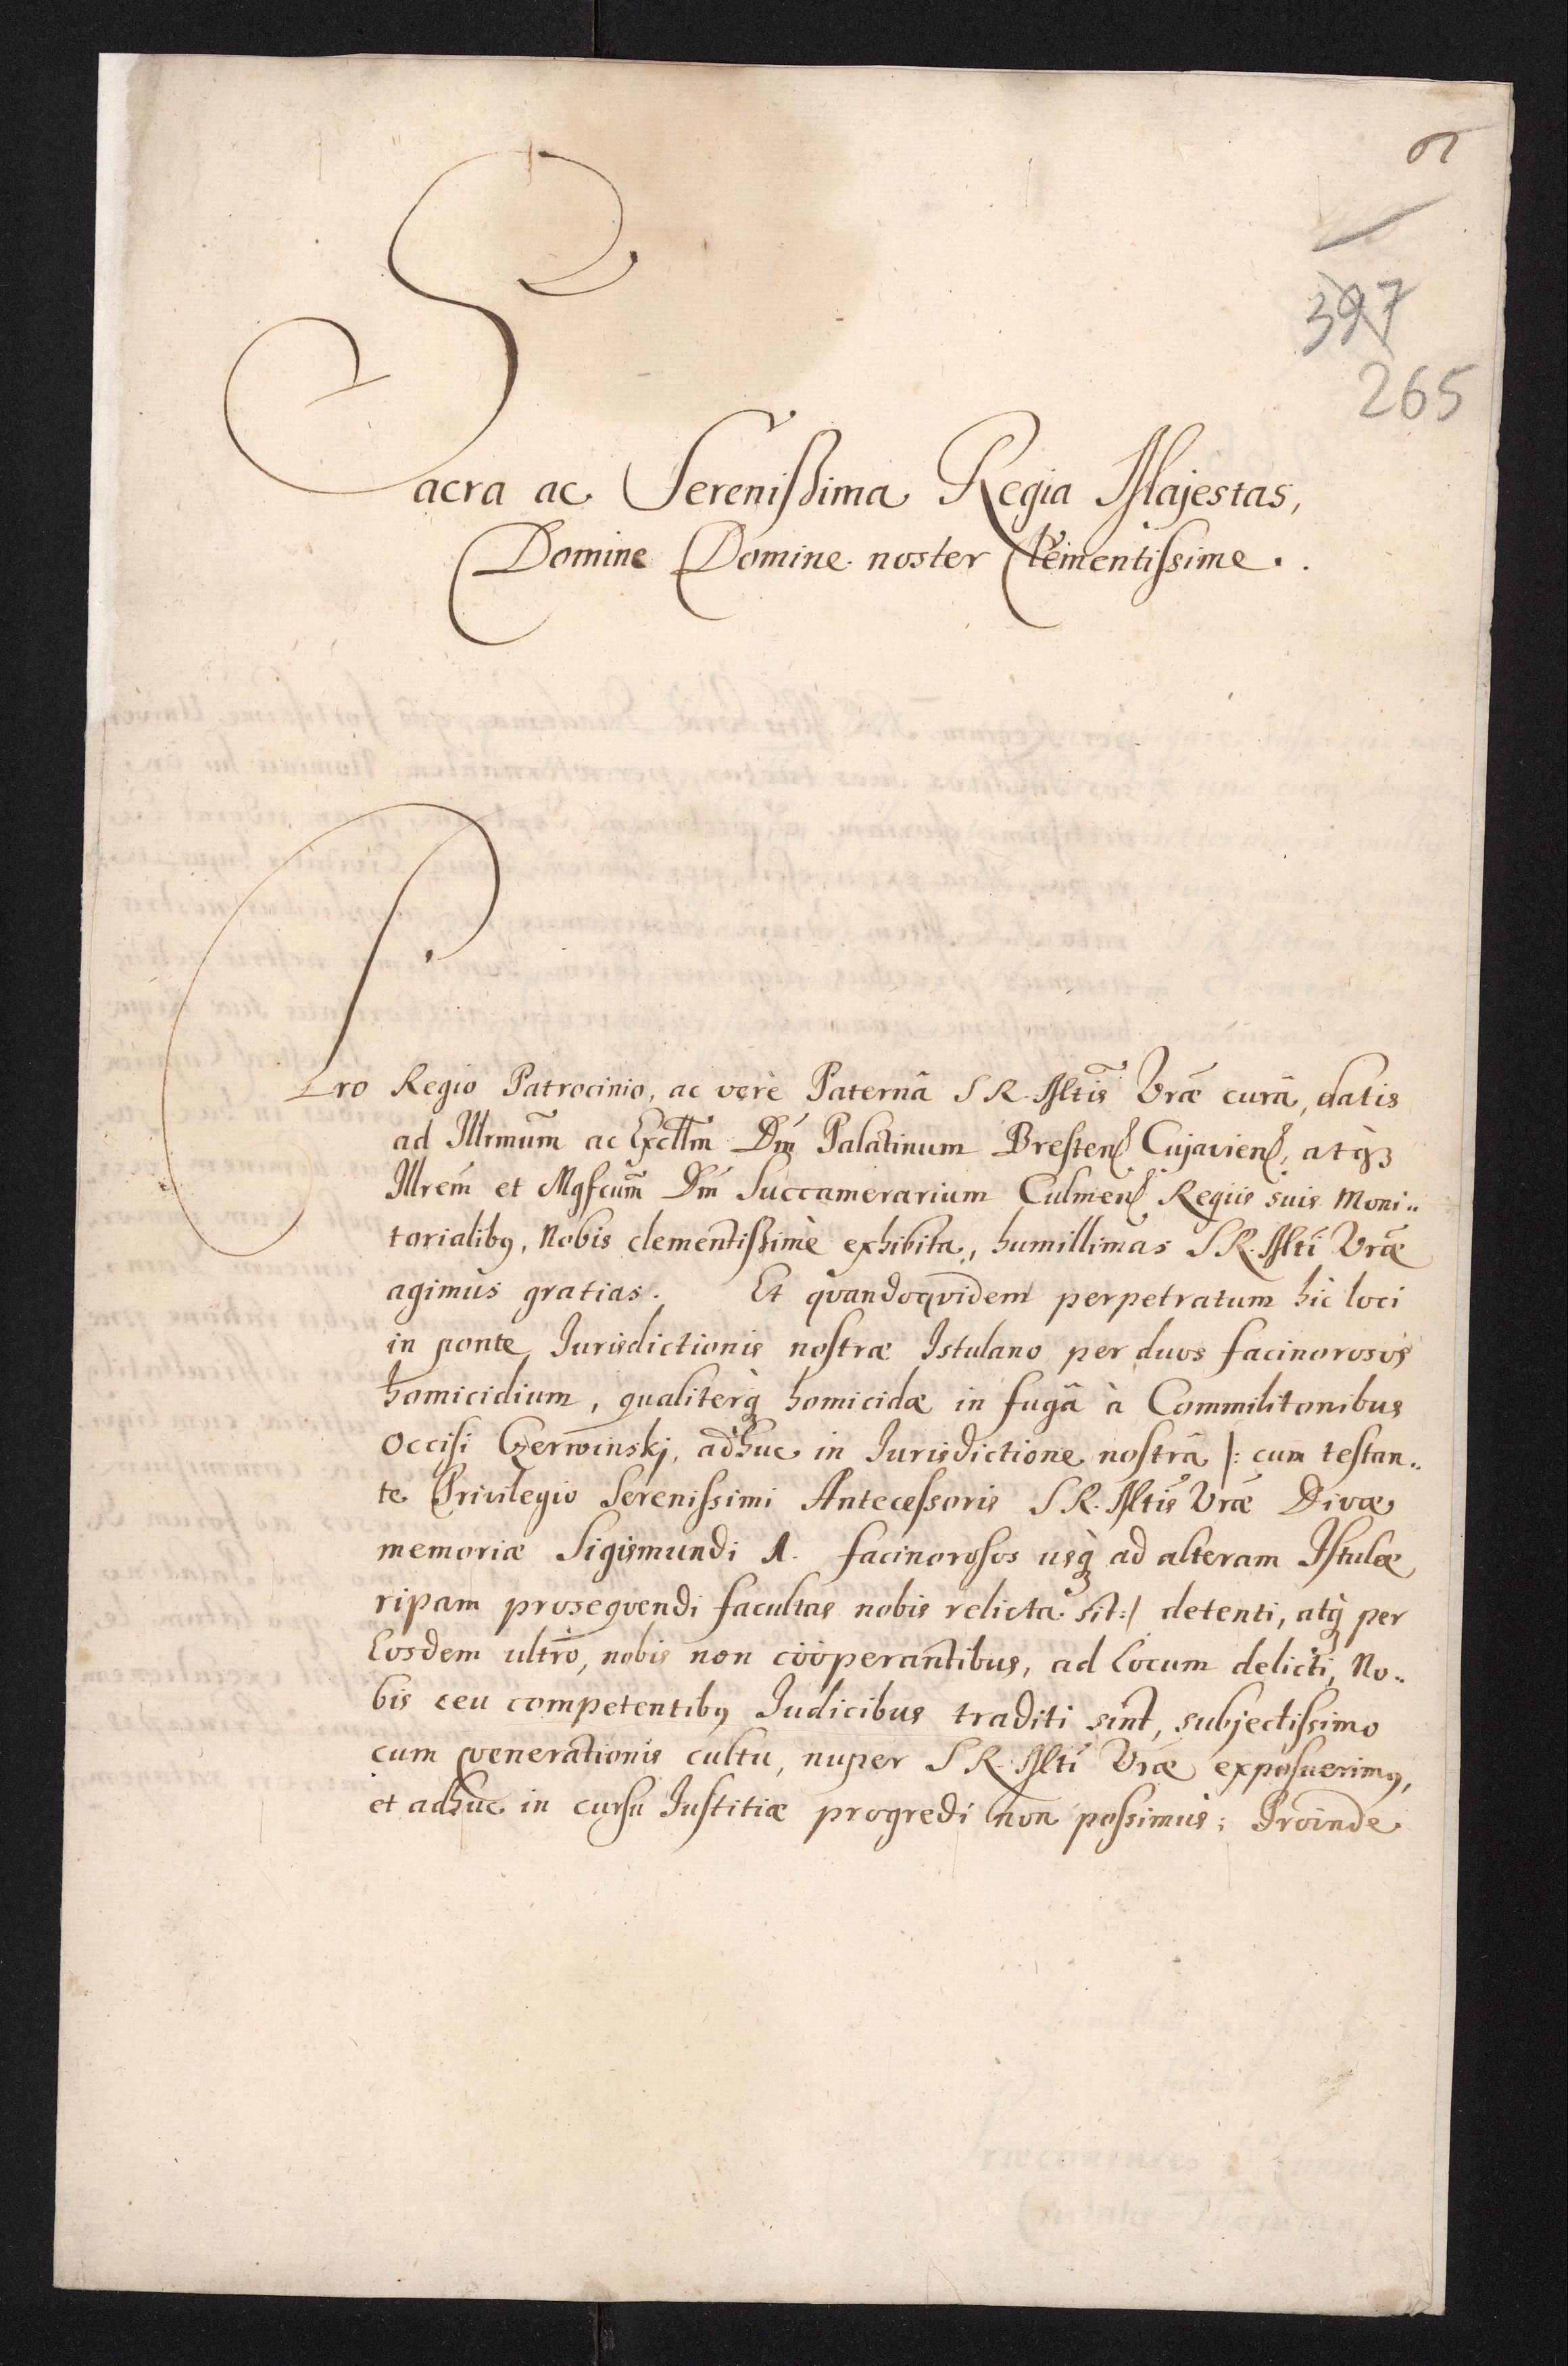 397
265
Sacra ac Sereniſsima Regia Majestas,
Domine Domine noster Clementiſsime.
Pro Regio Patrocinio, ac verè Paternâ S R. Mtis Vræ curâ, datis
ad Illrmum ac Excllm Dm Palatinum Bresten. Cujavien. atqꝫ
Illrem et Mgfcum Dm Succamerarium Culmen. Regiis suis Moni„
torialibꝰ, Nobis clementiſsimè exhibita, humillimas S R. Mti Vræ
agimus gratias. Et quandoqvidem perpetratum hic loci
in ponte Iurisdictionis noſtræ Istulano per duos facinorosos
homicidium, qualiterꝗ homicidæ in fugâ à Commilitonibus
occiſi Czerwinskj, adhuc in Iurisdictione noſtrâ |: cum teſtan„
te Privilegio Sereniſsimi Anteceſsoris S R. Mtis Vræ Divæ
memoriæ Sigismundi 1. facinoroſos usꝗ ad alteram Iſtulæ
ripam proseqvendi facultas nobis relicta sit :| detenti, atꝗ per
Eosdem ultrò, nobis non coöperantibus, ad Locum delicti, No„
bis ceu competentibꝰ Iudicibus traditi sint, subjectiſsimo
cum venerationis cultu, nuper S R. Mti Vræ expoſuerimꝰ,
et adhuc in curſu Iuſtitiæ progredi non poſsimus; Proinde